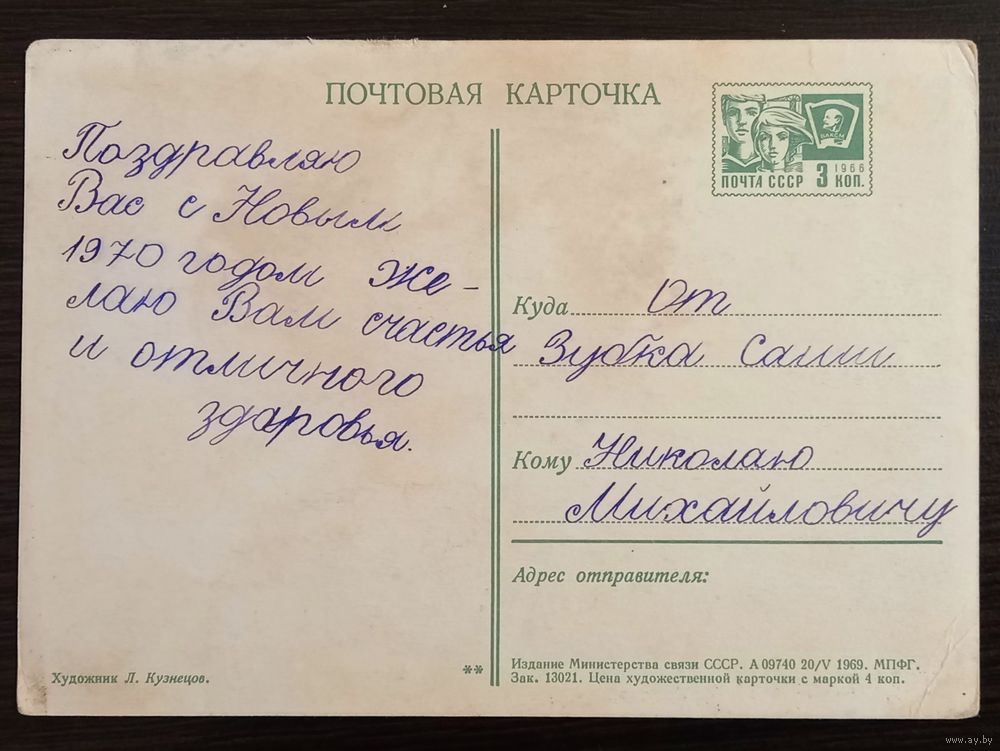 ПОЧТОВАЯ КАРТОЧКА
ВЛКСМ
1966
ПОЧТА СССР 3 КОП.
Поздравляю
Вас с Новым
1970 годом Же-
лаю Вам счастья
и отличного
здоровья.
Куда От
Зубка Саши
Кому Николаю
Михайловичу
Адрес отправителя:
Издание Министерства связи СССР. А 09740 20/V 1969. МПФГ.
Зак. 13021. Цена художественной карточки с маркой 4 коп.
Художник Л. Кузнецов.
**
www.ay.by